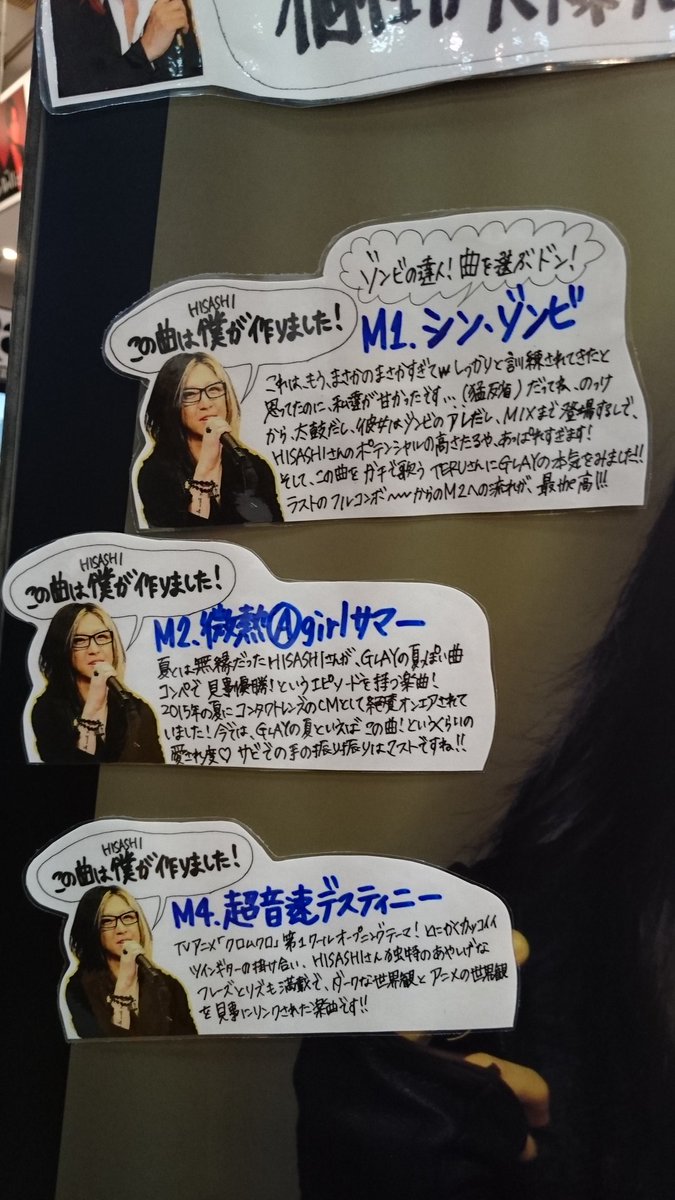 ゾンビの達人！曲を選ぶドン！
HISASHI
この曲は僕が作りました！
M1.シン、ゾンビ
これは、もう、まさかのまさかすぎてwしっかりと訓練されてきたと
思ってたのに、私達が甘かったです、、、(猛反省)だってね、のっけ
から、太鼓だし、彼女はゾンビのアレだし、MIXまで登場するしで、
HISASHIさんのポテンシャルの高さたるや、あっぱれすぎます！
そして、この曲をガチで歌うTERUさんにGLAYの本気をみました!!
ラストのフルコンボ〜〜からのM2への流れが、最&高!!!
HISASHI
この曲は僕が作りました！
M2.微熱Ⓐgirlサマー
夏とは無縁だったHISASHIさんが、GLAYの夏っぽい曲
コンペで見事優勝！というエピソードを持つ楽曲！
2015年の夏にコンタクトレンズのCMとして絶賛オンエアされて
いました！今では、GLAYの夏といえばこの曲！というくらいの
愛され度♡サビでの手の振り振りはマストですね!!
HISASHI
この曲は僕が作りました！
M4.超音速デスティニー
TVアニメ「クロムクロ」第1クールオープニングテーマ！とにかくカッコイイ
ツインギターの掛け合い、HISASHIさん独特のあやしげな
フレーズとリズも満載で、ダークな世界観とアニメの世界観
を見事にリンクされた楽曲です!!